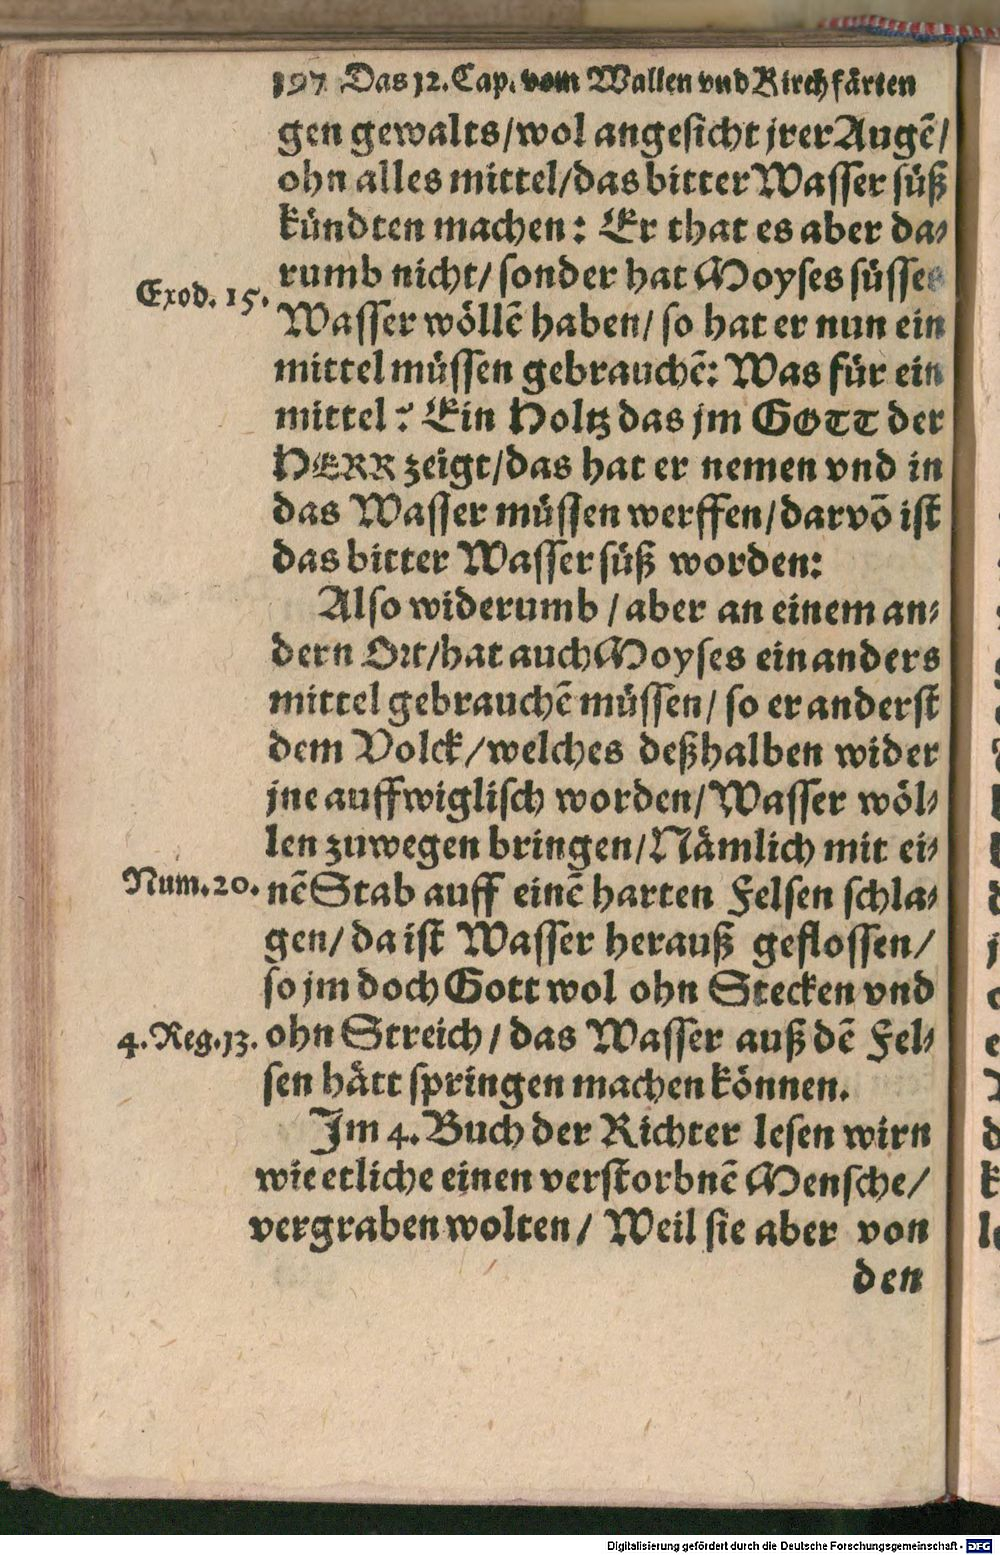 197 Das 12. Cap. vom Wallen vnd Kirchfärten
gen gewalts/wol angesicht jrer Augẽ/
ohn alles mittel/das bitter Wasser süß
kündten machen: Er that es aber da-
rumb nicht/ sonder hat Moyses süsses
Exod. 15.
Wasser wöllẽ haben/ so hat er nun ein
mittel müssen gebrauchẽ: Was für ein
mittel? Ein Holtz das jm GOTT der
HERR zeigt/das hat er nemen vnd in
das Wasser müssen werffen/darvõ ist
das bitter Wasser süß worden:
Also widerumb / aber an einem an-
dern Ort/hat auch Moyses ein anders
mittel gebrauchẽ müssen/ so er anderst
dem Volck/welches deßhalben wider
jne auffwiglisch worden/Wasser wöl-
len zuwegen bringen/Nämlich mit ei-
Num. 20.
nẽ Stab auff einẽ harten Felsen schla-
gen/ da ist Wasser herauß geflossen/
so jm doch Gott wol ohn Stecken vnd
4. Reg. 13.
ohn Streich/ das Wasser auß dẽ Fel-
sen hätt springen machen können.
Im 4. Buch der Richter lesen wirn
wie etliche einen verstorbnẽ Mensche/
vergraben wolten/ Weil sie aber von
den
Digitalisierung gefördert durch die Deutsche Forschungsgemeinschaft - DFG